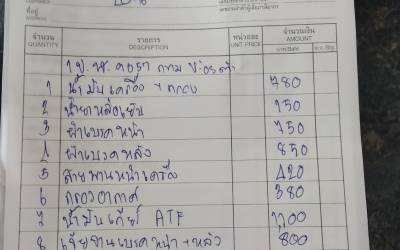 ที่อยู่
จำนวน QUANTITY รายการ DESCRIPTION หน่วยละ UNIT PRICE จำนวนเงิน AMOUNT
บาท/Baht
1 น้ำมันเครื่อง + กรอง 780
2 น้ำยาหล่อเย็น 150
3 ผ้าเบรคหน้า 750
4 ผ้าเบรคหลัง 850
5 สายพานหน้าเครื่อง 420
6 กรองอากาศ 380
7 น้ำมันเกียร์ ATF 1200
8 เจียจานเบรคหน้า + หลัง 800